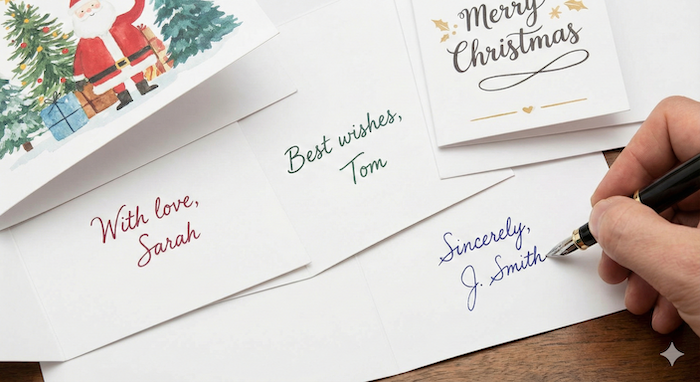 Merry
Christmas
Best wishes,
Tom
With love,
Sarah
Sincerely,
J. Smith